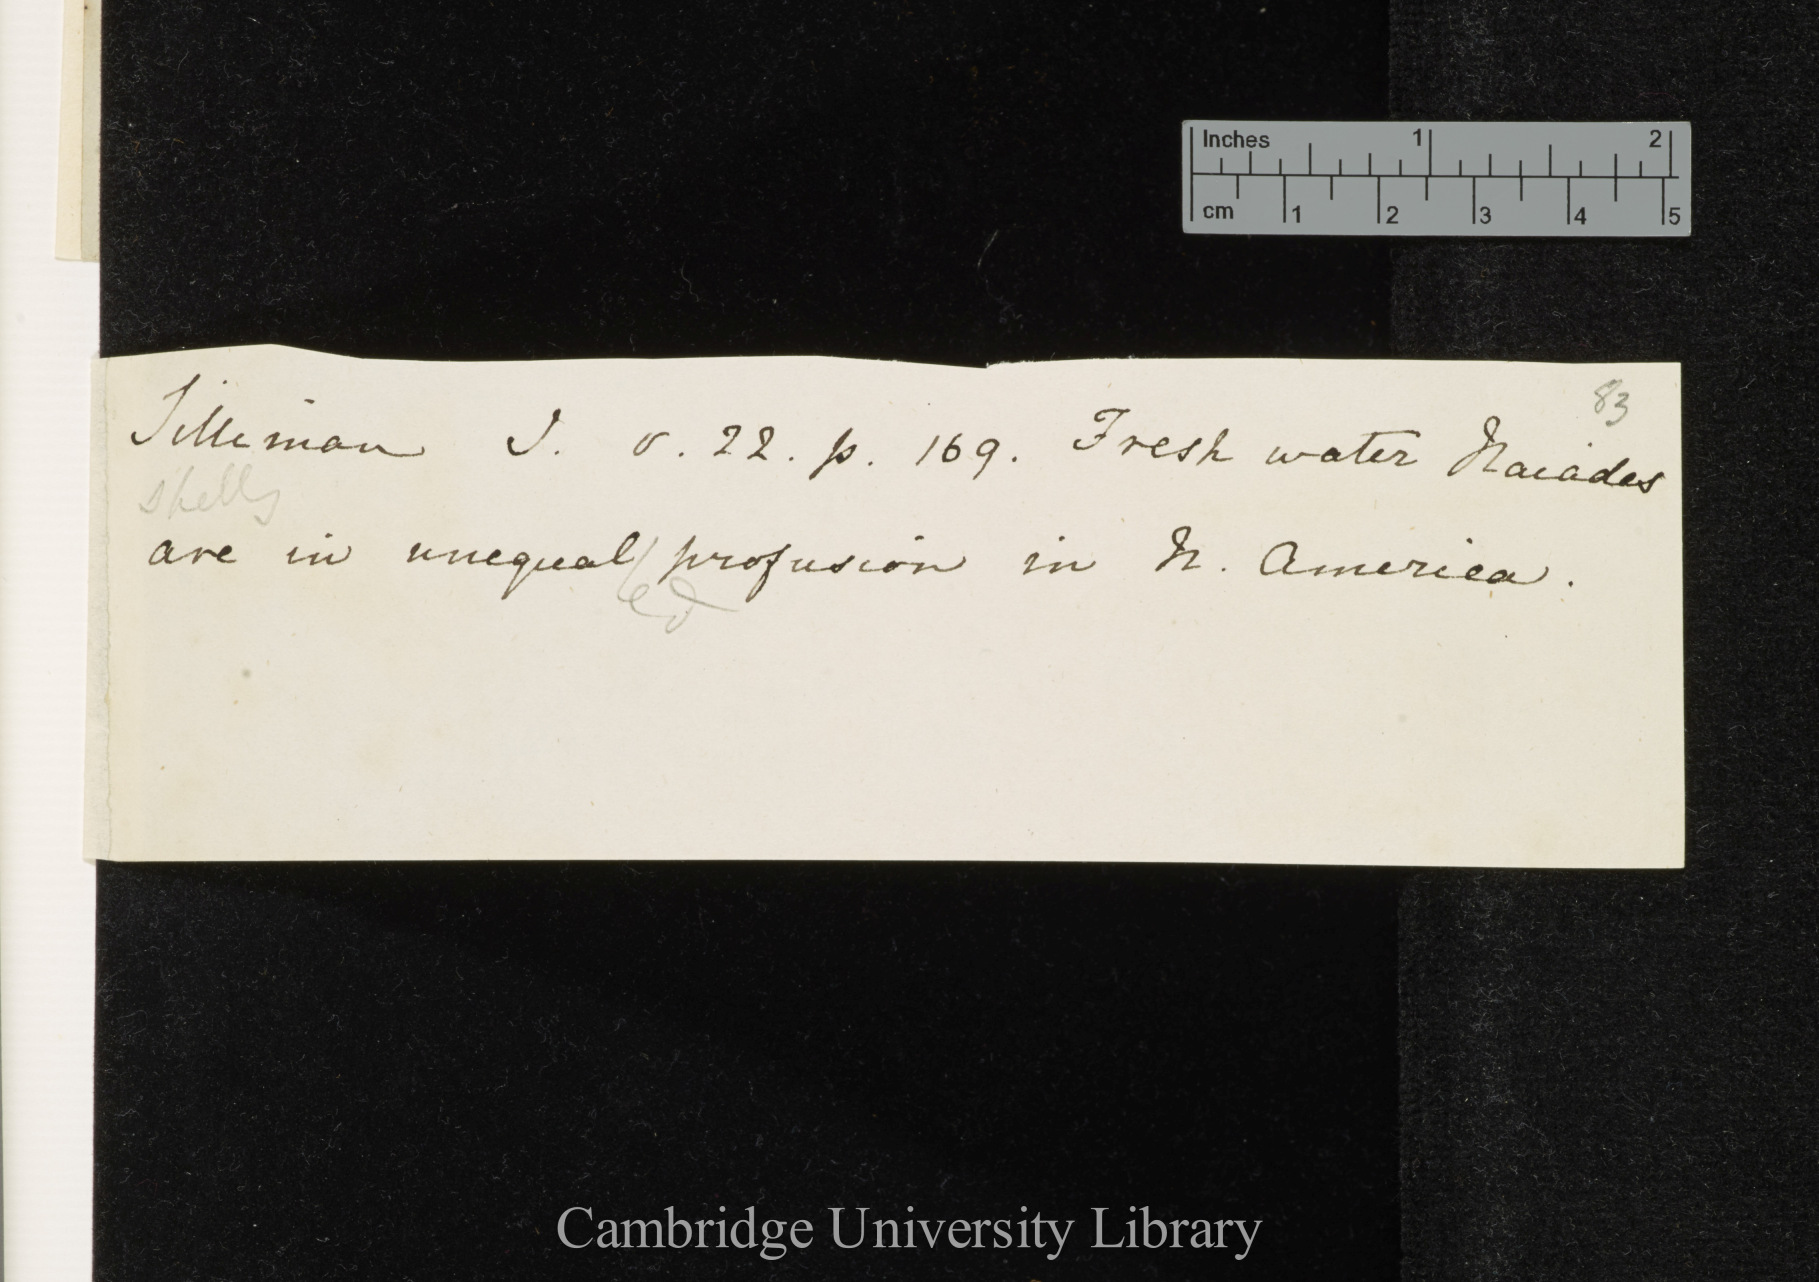 Inches 1 2
cm 1 2 3 4 5
83
Silliman J. v. 22. p. 169. Fresh water Naiades
shells
are in unequal profusion in N. America.
led
Cambridge University Library